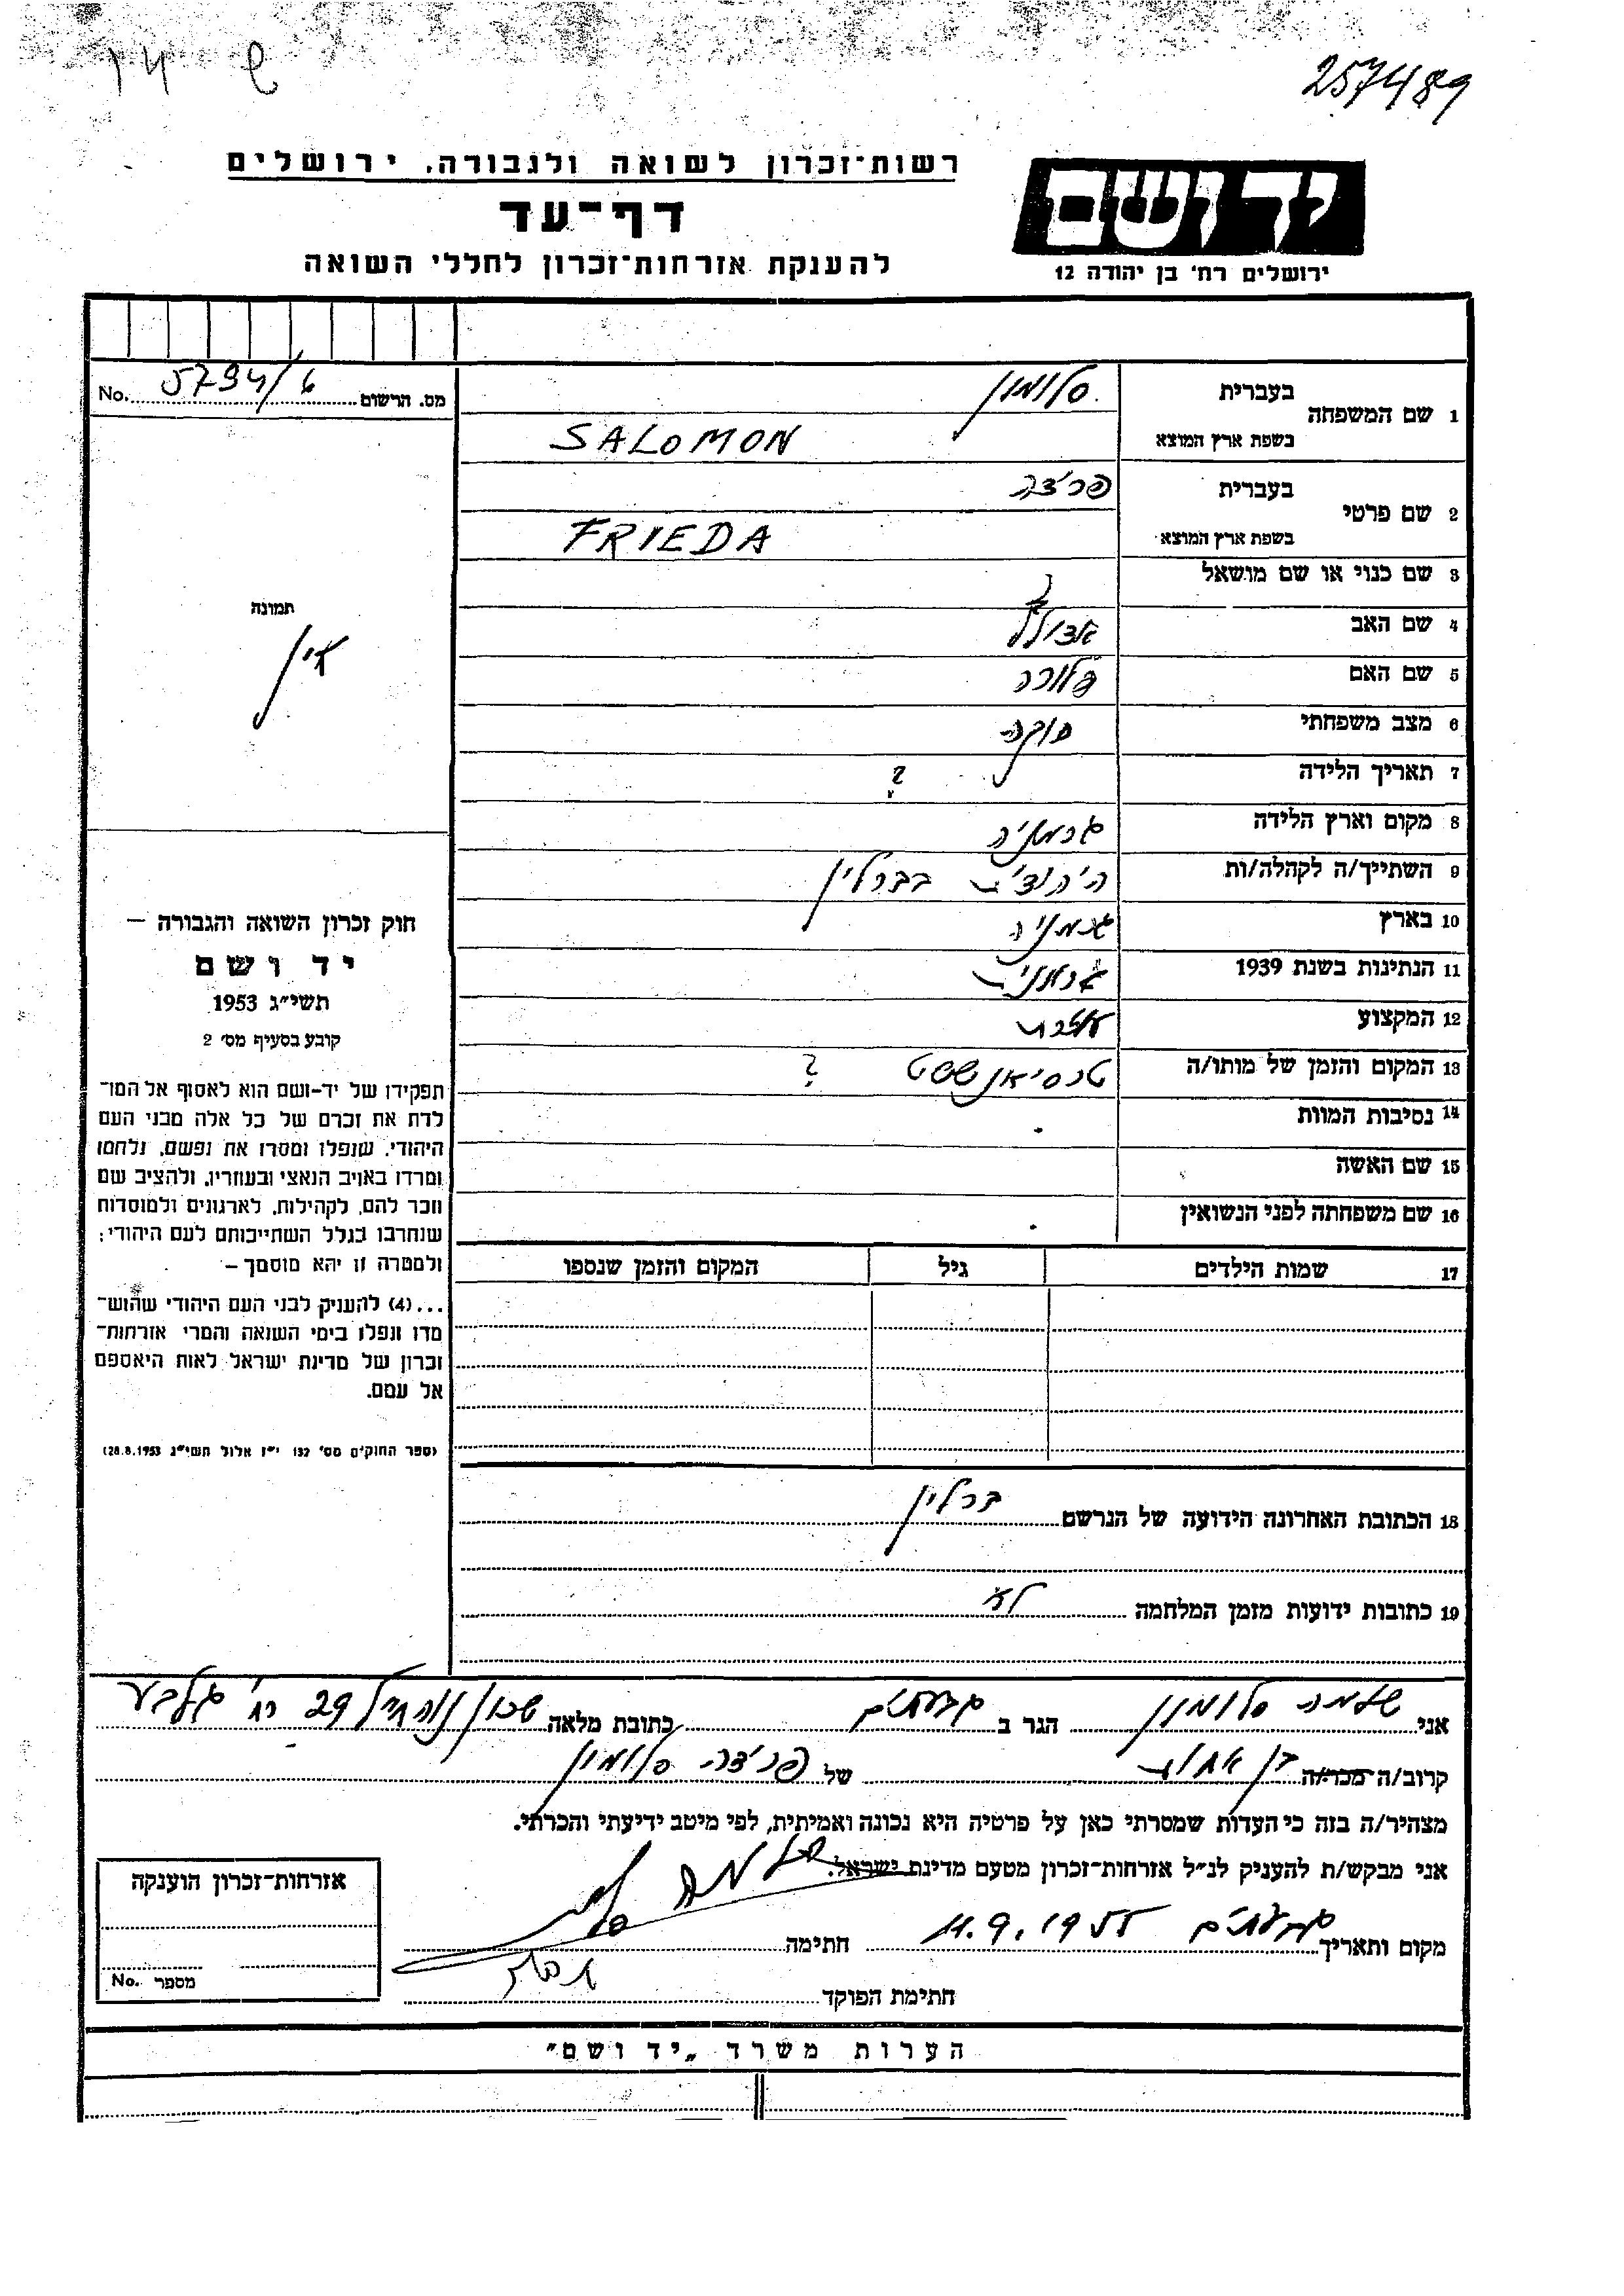 257489
ש 14
רשות־זכרון לשואה ולגבורה, ירושלים
יד ושם
דף־עד
להענקת אזרחות־זכרון לחללי השואה
ירושלים רח׳ בן יהודה 12
מס. הרשום 5794/6 No.
1 שם המשפחה בעברית סלומון
בשפת ארץ המוצא SALOMON
2 שם פרטי בעברית פרידה
בשפת ארץ המוצא FRIEDA
3 שם כנוי או שם מושאל
4 שם האב אדולף
5 שם האם פלורה
6 מצב משפחתי רוקה
7 תאריך הלידה ?
8 מקום וארץ הלידה גרמניה
9 השתייך/ה לקהלה/ות היהודית בברלין
10 בארץ גרמניה
11 הנתינות בשנת 1939 גרמנית
12 המקצוע עוזרת
13 המקום והזמן של מותו/ה טרסיאנשטט ?
14 נסיבות המוות
15 שם האשה
16 שם משפחתה לפני הנשואין
17 שמות הילדים גיל המקום והזמן שנספו
18 הכתובת האחרונה הידועה של הנרשם ברלין
19 כתובות ידועות מזמן המלחמה לא
תמונה
אין
חוק זכרון השואה והגבורה –
יד ושם
תשי״ג 1953
קובע בסעיף מס׳ 2
תפקידו של יד-ושם הוא לאסוף אל המו־
לדת את זכרם של כל אלה מבני העם
היהודי, שנפלו ומסרו את נפשם, נלחמו
ומרדו באויב הנאצי ובעוזריו, ולהציב שם
וזכר להם, לקהילות, לארגונים ולמוסדות
שנחרבו בגלל השתייכותם לעם היהודי;
ולמטרה זו יהא מוסמך –
...(4) להעניק לבני העם היהודי שהוש־
מדו ונפלו בימי השואה והמרי אזרחות־
זכרון של מדינת ישראל לאות היאספם
אל עמם.
(ספר החוקים מס׳ 132 י״ז אלול תשי״ג 28.8.1953)
אני שלמה סלומון הגר ב גבעתים כתובת מלאה שכון 29 רח׳ גלבע
קרוב/ה מכר/ה בן אחות של פרידה סלומון
מצהיר/ה בזה כי העדות שמסרתי כאן על פרטיה היא נכונה ואמיתית, לפי מיטב ידיעתי והכרתי.
אני מבקש/ת להעניק לנ״ל אזרחות־זכרון מטעם מדינת ישראל.
מקום ותאריך גבעתים 11.9.1955 חתימה שלמה
חתימת הפוקד
אזרחות־זכרון הוענקה
מספר No.
הערות משרד „יד ושם״